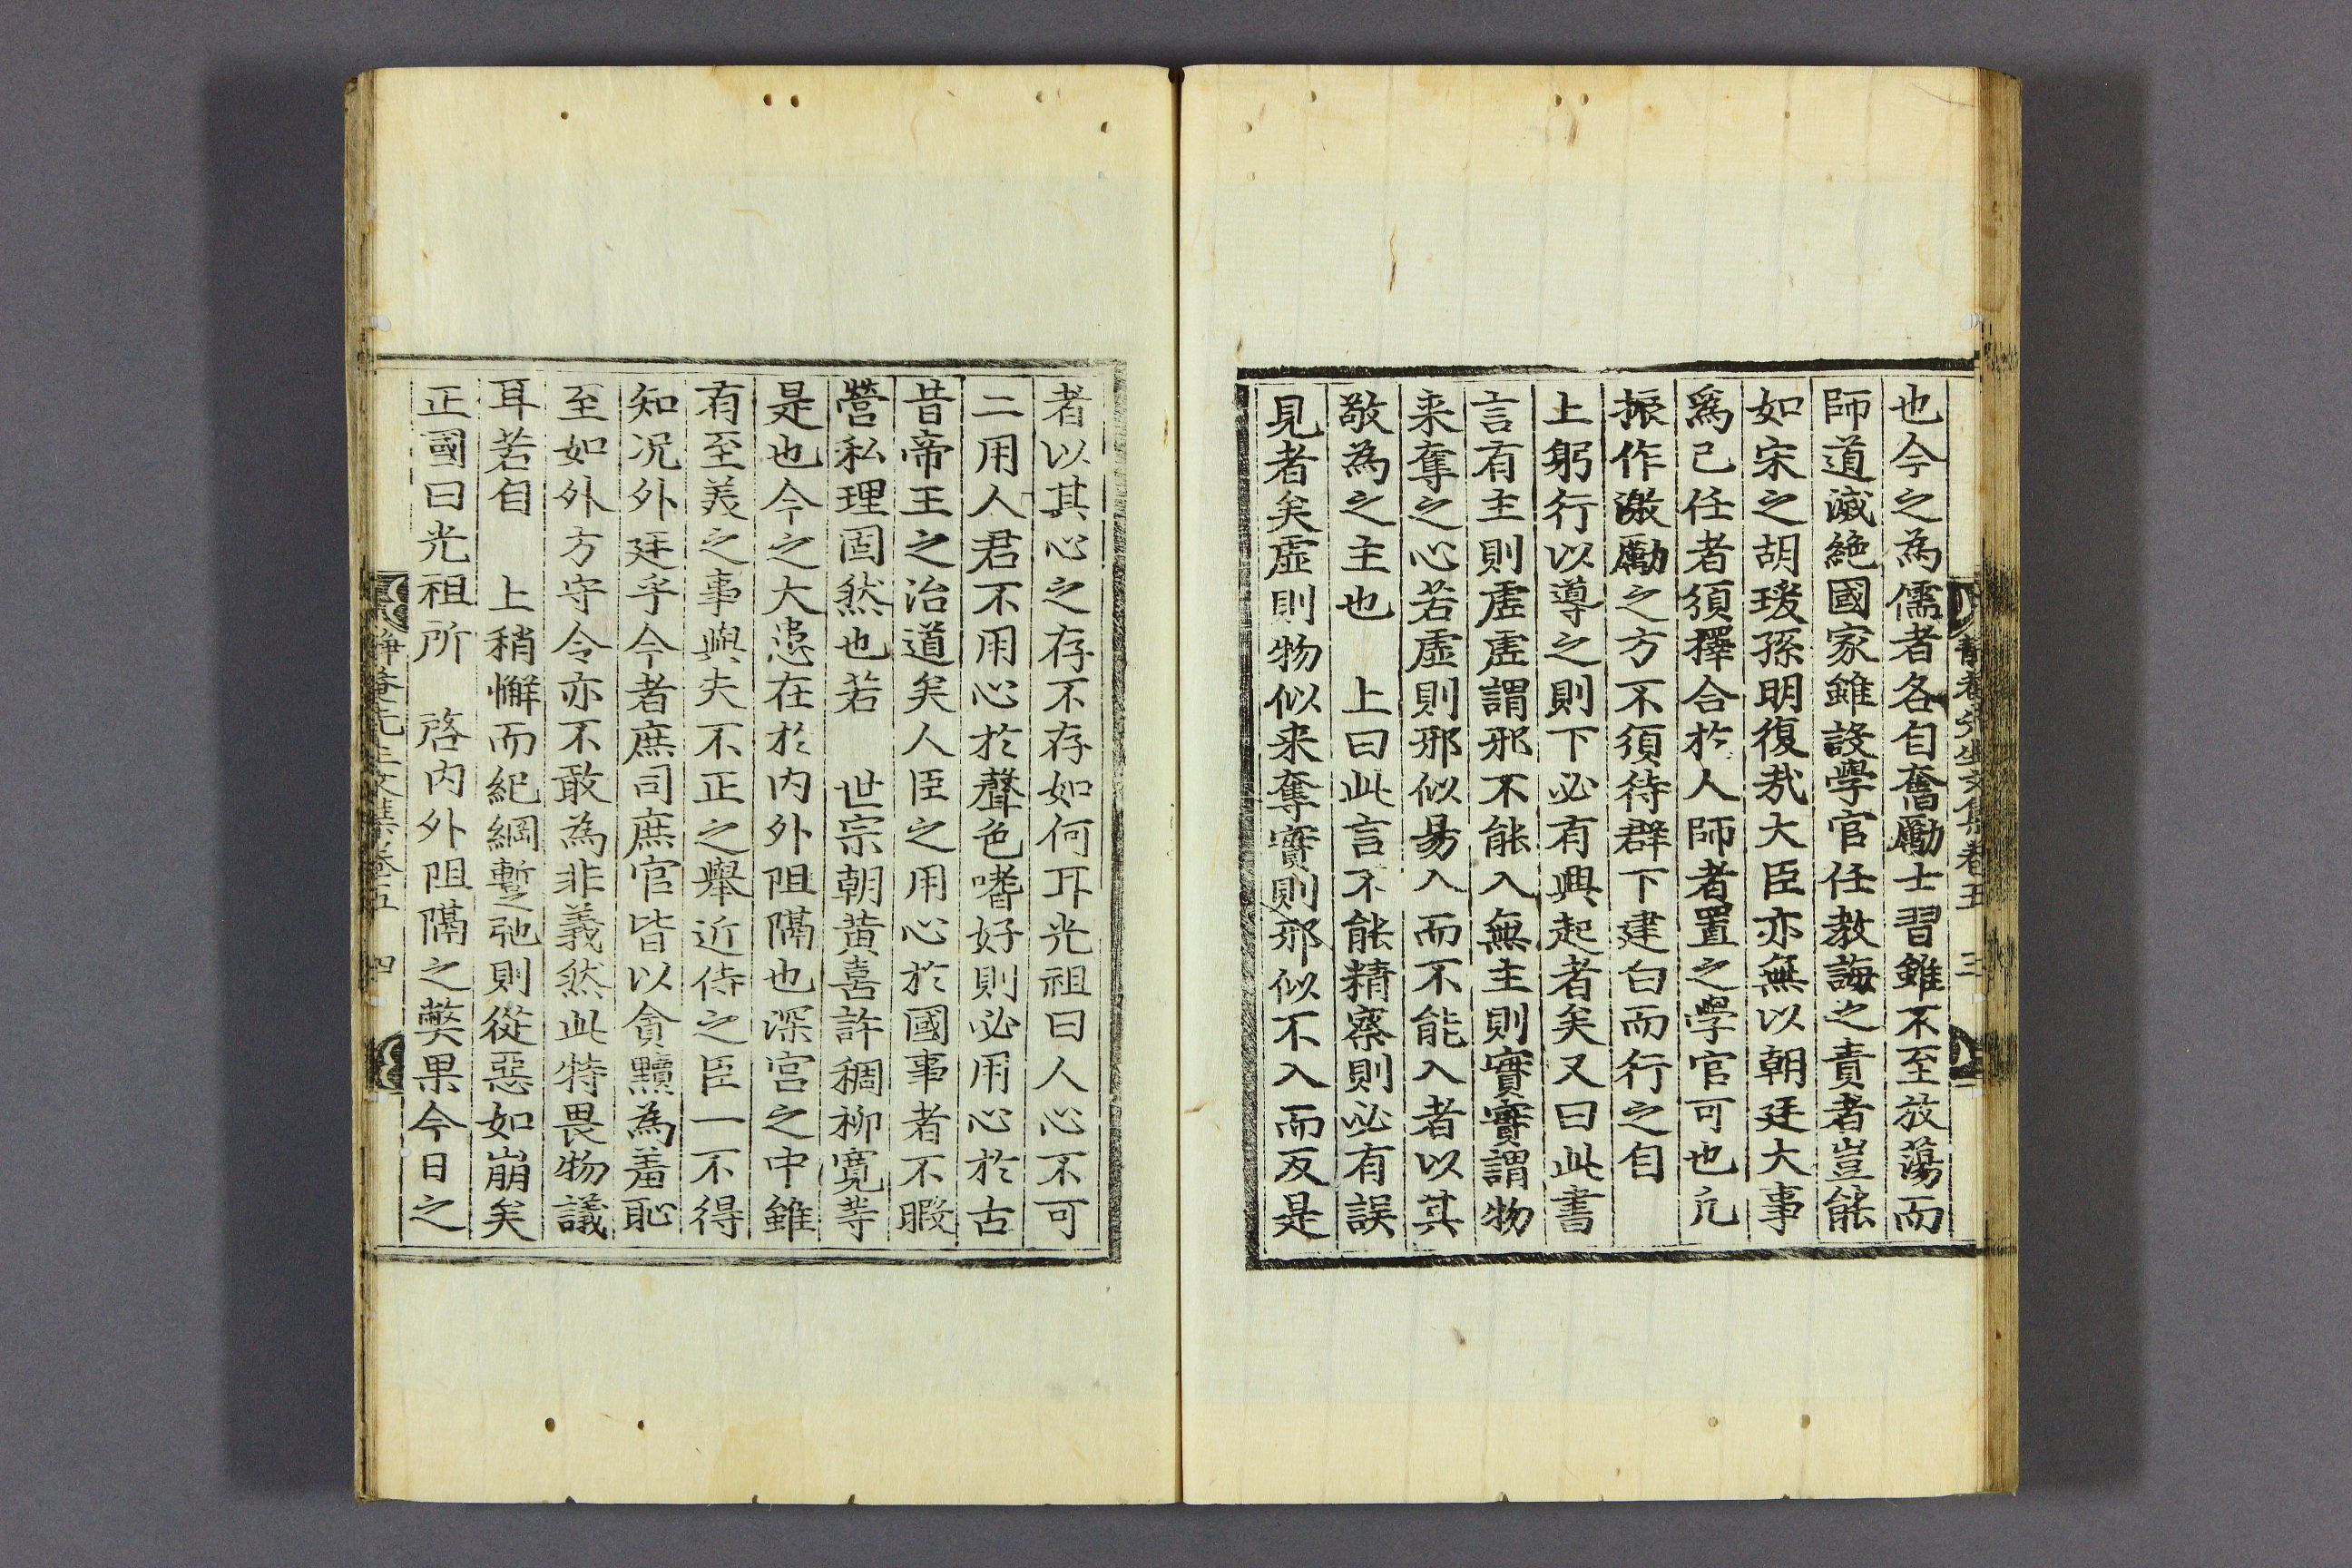 靜菴先生文集卷五 三
也今之為儒者各自奮勵士習雖不至放蕩而
師道滅絶國家雖設學官任教誨之責者豈能
如宋之胡瑗孫明復㦲大臣亦無以朝廷大事
爲己任者須擇合於人師者置之學官可也凢
振作激勵之方不須待群下建白而行之自
上躬行以導之則下必有興起者矣又曰此書
言有主則虛虛謂邪不能入無主則實實謂物
来奪之心若虛則邪似易入而不能入者以其
敬為之主也 上曰此言不能精察則必有誤
見者矣虛則物似来奪實則邪似不入而反是
者以其心之存不存如何耳光祖曰人心不可
二用人君不用心於聲色嗜好則必用心於古
昔帝王之治道矣人臣之用心於國事者不暇
營私理固然也若 世宗朝黃喜許稠柳寛等
是也今之大患在於内外阻隔也深宮之中雖
有至美之事與夫不正之舉近侍之臣一不得
知况外廷乎今者庶司庶官皆以貪黷為羞恥
至如外方守令亦不敢為非義然此特畏物議
耳若自 上稍懈而紀綱蹔弛則從惡如崩矣
正國曰光祖所 啓内外阻隔之獘果今日之
靜菴先生文集卷五 四